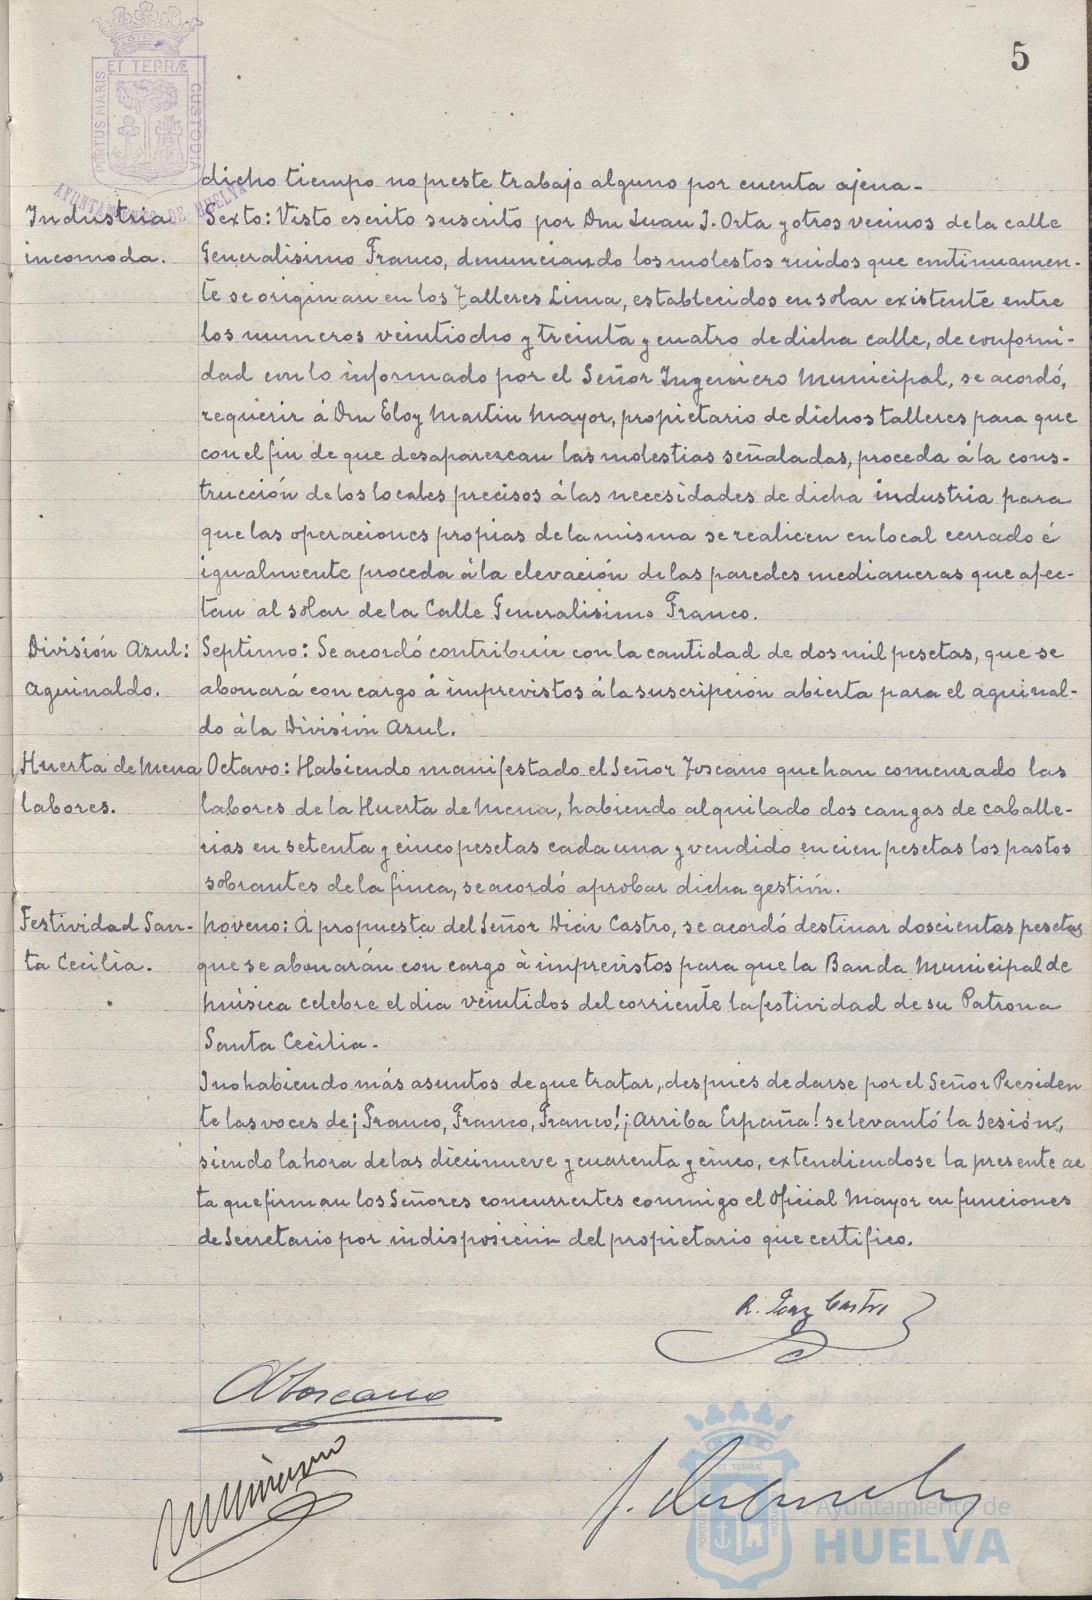 5
PORTUS MARIS ET TERRÆ CUSTODIA
AYUNTAMIENTO DE HUELVA
dicho tiempo no preste trabajo alguno por cuenta ajena.-
Industria incomoda.
Sexto: Visto escrito suscrito por Don Juan J. Orta y otros vecinos de la calle
Generalisimo Franco, denunciando los molestos ruidos que continuamen-
te se originan en los Talleres Lima, establecidos en solar existente entre
los numeros veintiocho y treinta y cuatro de dicha calle, de conformi-
dad con lo informado por el Señor Ingeniero Municipal, se acordó,
requerir á Don Eloy Martin Mayor, propietario de dichos talleres para que
con el fin de que desaparezcan las molestias señaladas, proceda á la cons-
trucción de los locales precisos á las necesidades de dicha industria para
que las operaciones propias de la misma se realicen en local cerrado é
igualmente proceda á la elevación de las paredes medianeras que afec-
tan al solar de la Calle Generalisimo Franco.
División Azul:
aguinaldo.
Septimo: Se acordó contribuir con la cantidad de dos mil pesetas, que se
abonará con cargo á imprevistos á la suscripción abierta para el aguinal-
do á la División Azul.
Huerta de Mena
labores.
Octavo: Habiendo manifestado el Señor Toscano que han comenzado las
labores de la Huerta de Mena, habiendo alquilado dos cangas de caballe-
rias en setenta y cinco pesetas cada una y vendido en cien pesetas los pastos
sobrantes de la finca, se acordó aprobar dicha gestión.
Festividad San-
ta Cecilia.
Noveno: A propuesta del Señor Diaz Castro, se acordó destinar doscientas pesetas
que se abonarán con cargo á imprevistos para que la Banda Municipal de
música celebre el dia veintidos del corriente la festividad de su Patrona
Santa Cecilia.-
I no habiendo más asuntos de que tratar, despues de darse por el Señor Presiden
te las voces de ¡Franco, Franco, Franco! ¡Arriba España! se levantó la Sesión,
siendo la hora de las diecinueve y cuarenta y cinco, extendiendose la presente ac
ta que firman los Señores concurrentes conmigo el Oficial Mayor en funciones
de Secretario por indisposición del propietario que certifico.
R. Diaz Castro
Toscano
ET TERRÆ
Ayuntamiento de
HUELVA